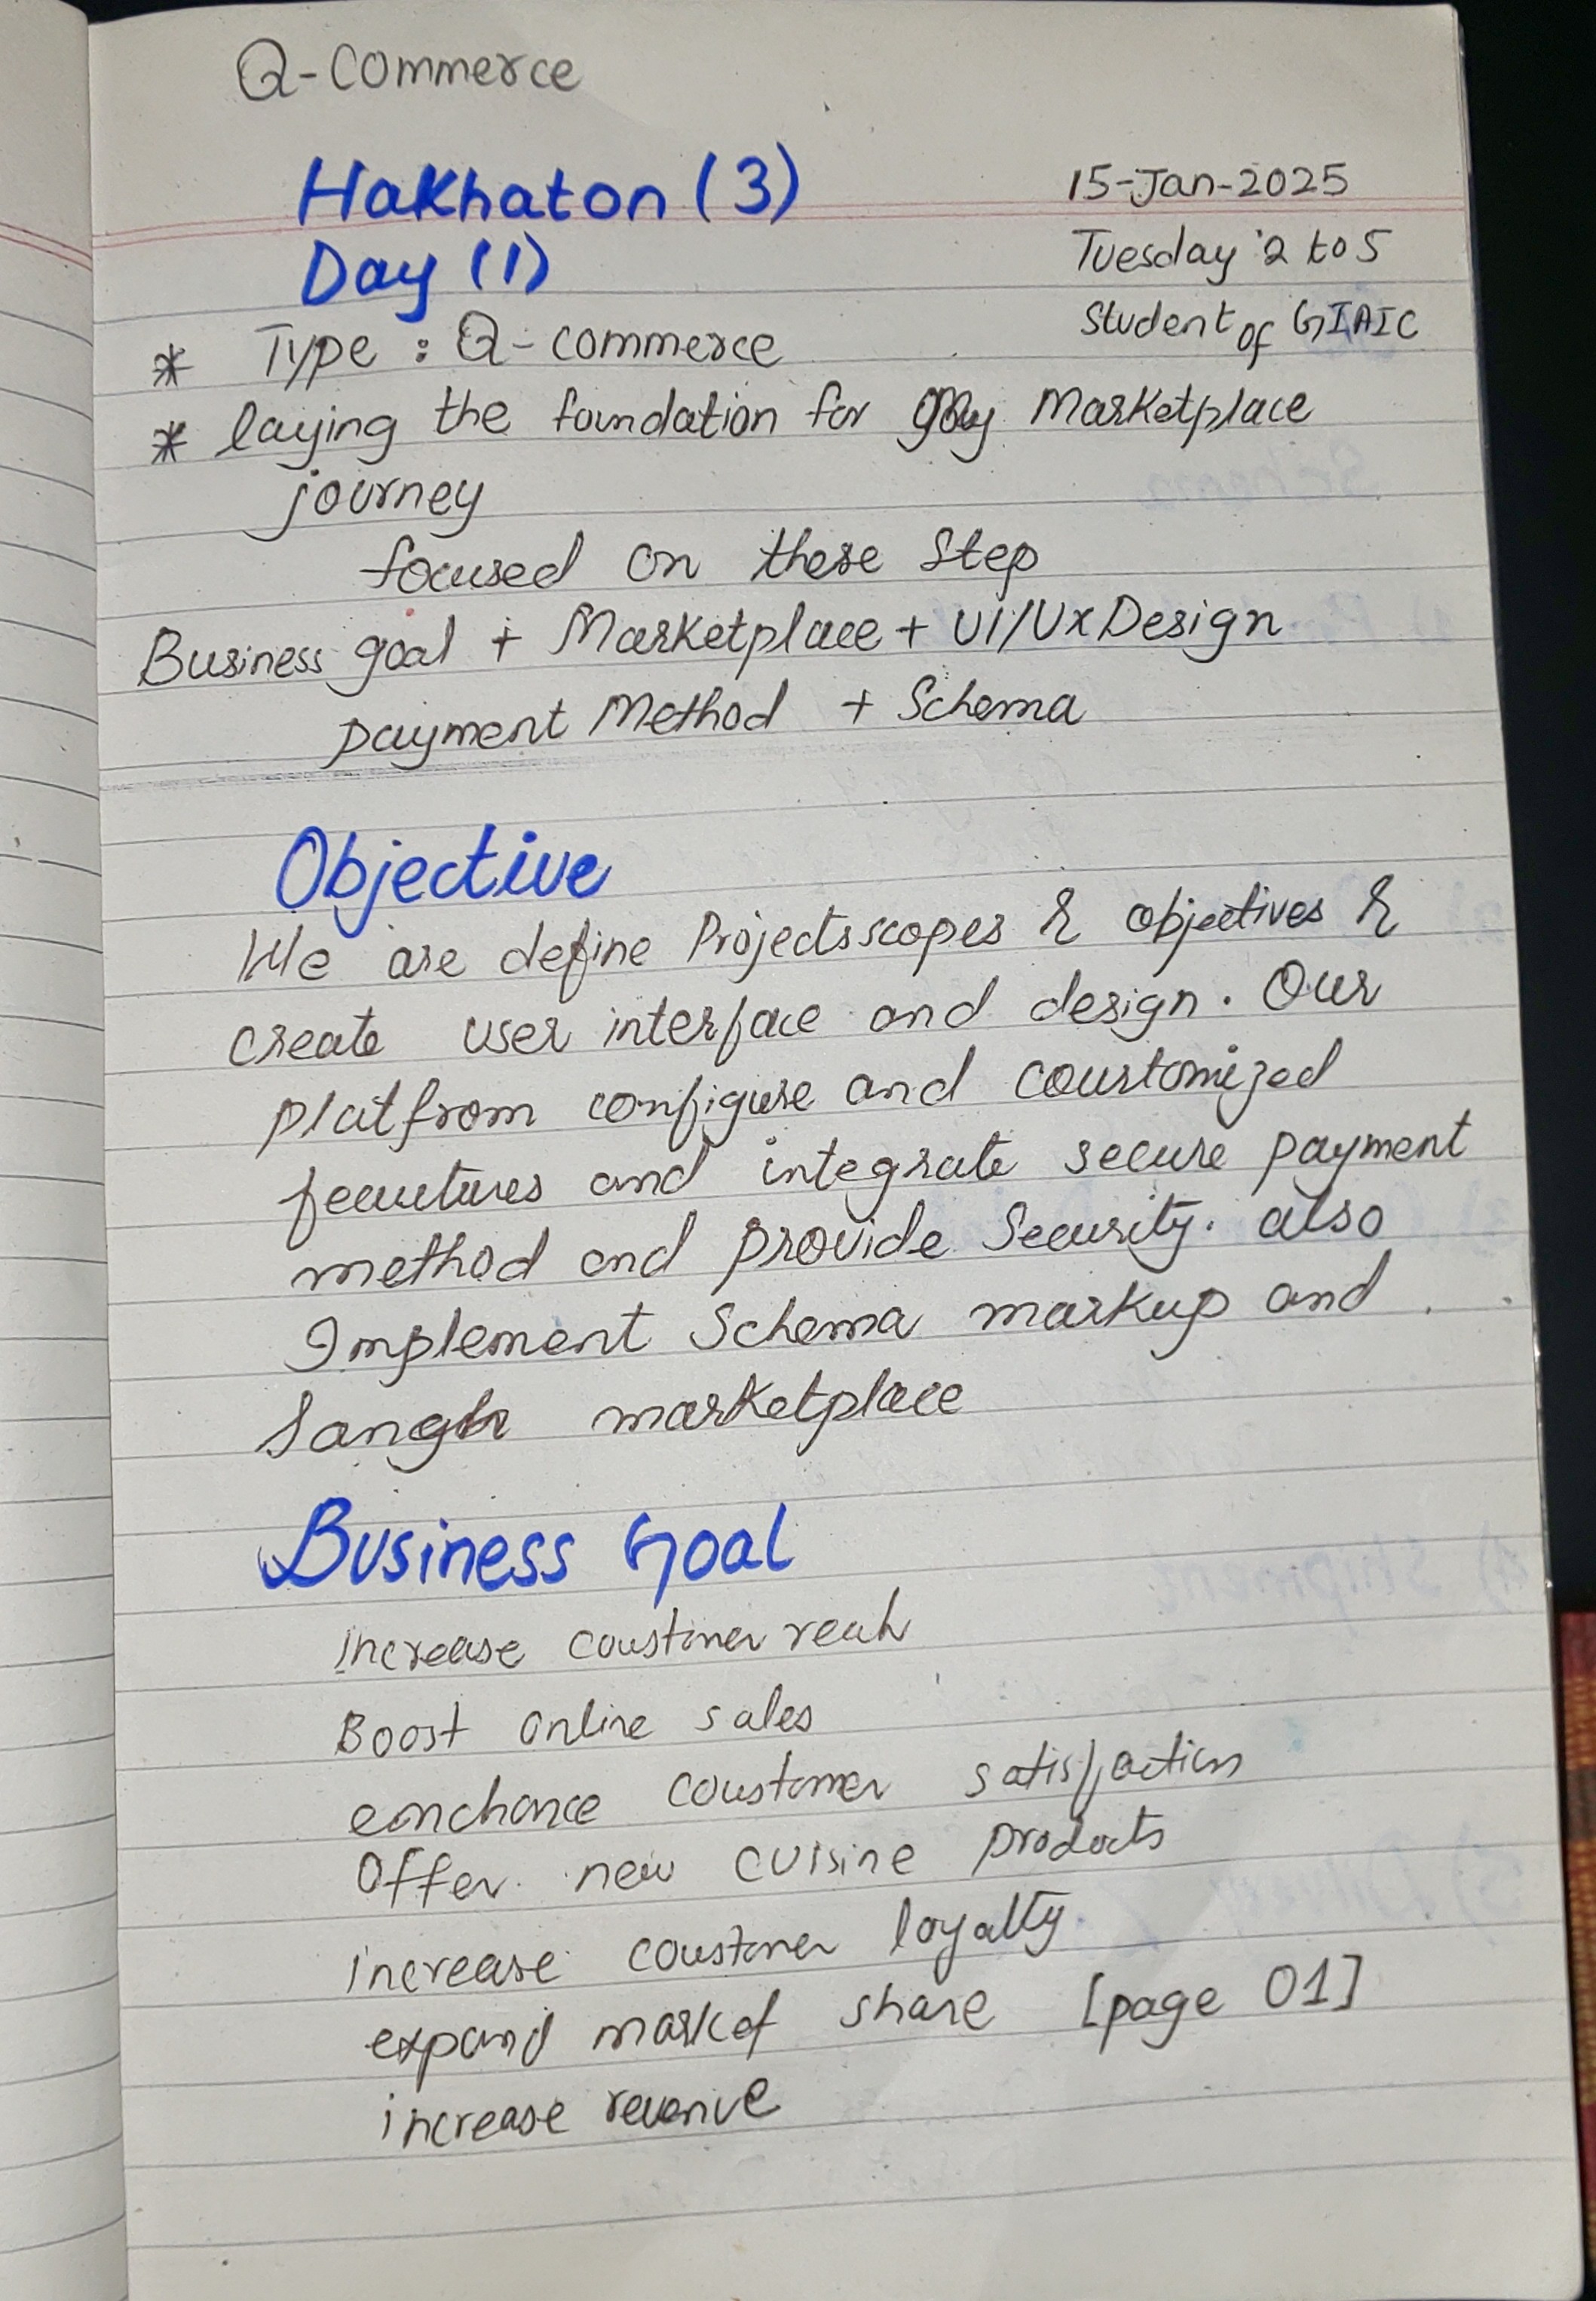 Q-Commerce
Hakhaton (3)
15-Jan-2025
Day (1)
Tuesday 2 to 5
Student of GIAIC
* Type : Q-commerce
* laying the foundation for My Marketplace
journey
focused on these Step
Business goal + Marketplace + UI/Ux Design
payment Method + Schema
Objective
We are define Projectsscopes & objectives &
create user interface and design. Our
platfrom configure and coustomized
feautures and integrate secure payment
method and provide Security. also
Implement Schema markup and
marketplace
Business Goal
increase coustomer reah
Boost online sales
enchance coustomer satisfaction
Offer new cuisine products
increase coustomer loyalty
expand market share [page 01]
increase revenve